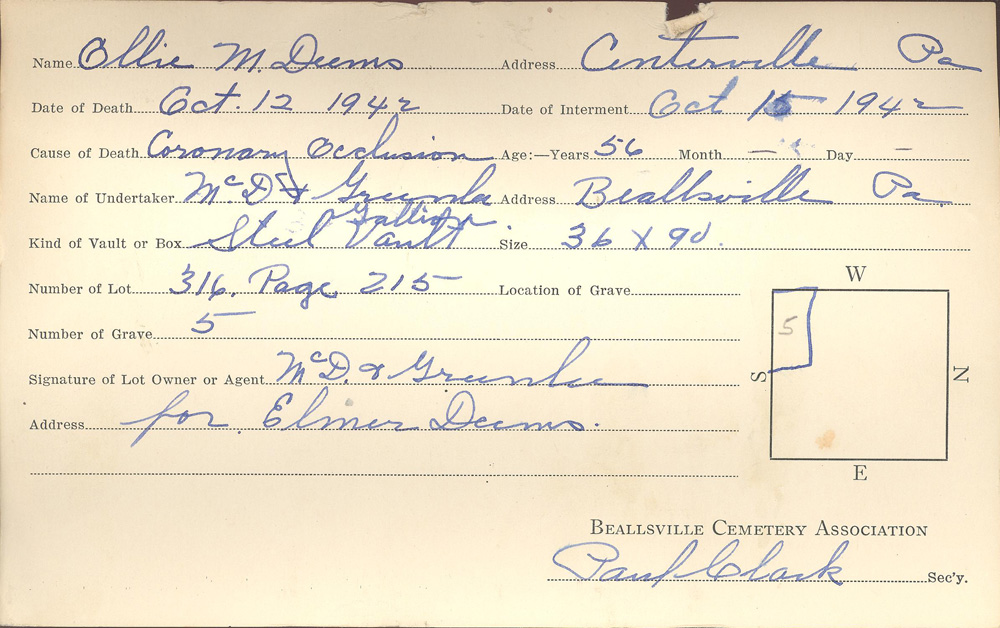 Name Ollie M. Deems Address Centerville Pa
Date of Death Oct. 12 1942 Date of Interment Oct 15 1942
Cause of Death Coronary Occlusion Age:—Years 56 Month — Day —
Name of Undertaker McD & Greenlee Address Beallsville Pa.
Kind of Vault or Box Steel Vault Size 36 X 90.
Number of Lot 316, Page 215 Location of Grave
Number of Grave 5
Signature of Lot Owner or Agent McD. & Greenlee
Address for Elmer Deems.
W
5
S
N
E
BEALLSVILLE CEMETERY ASSOCIATION
Paul Clark Sec'y.